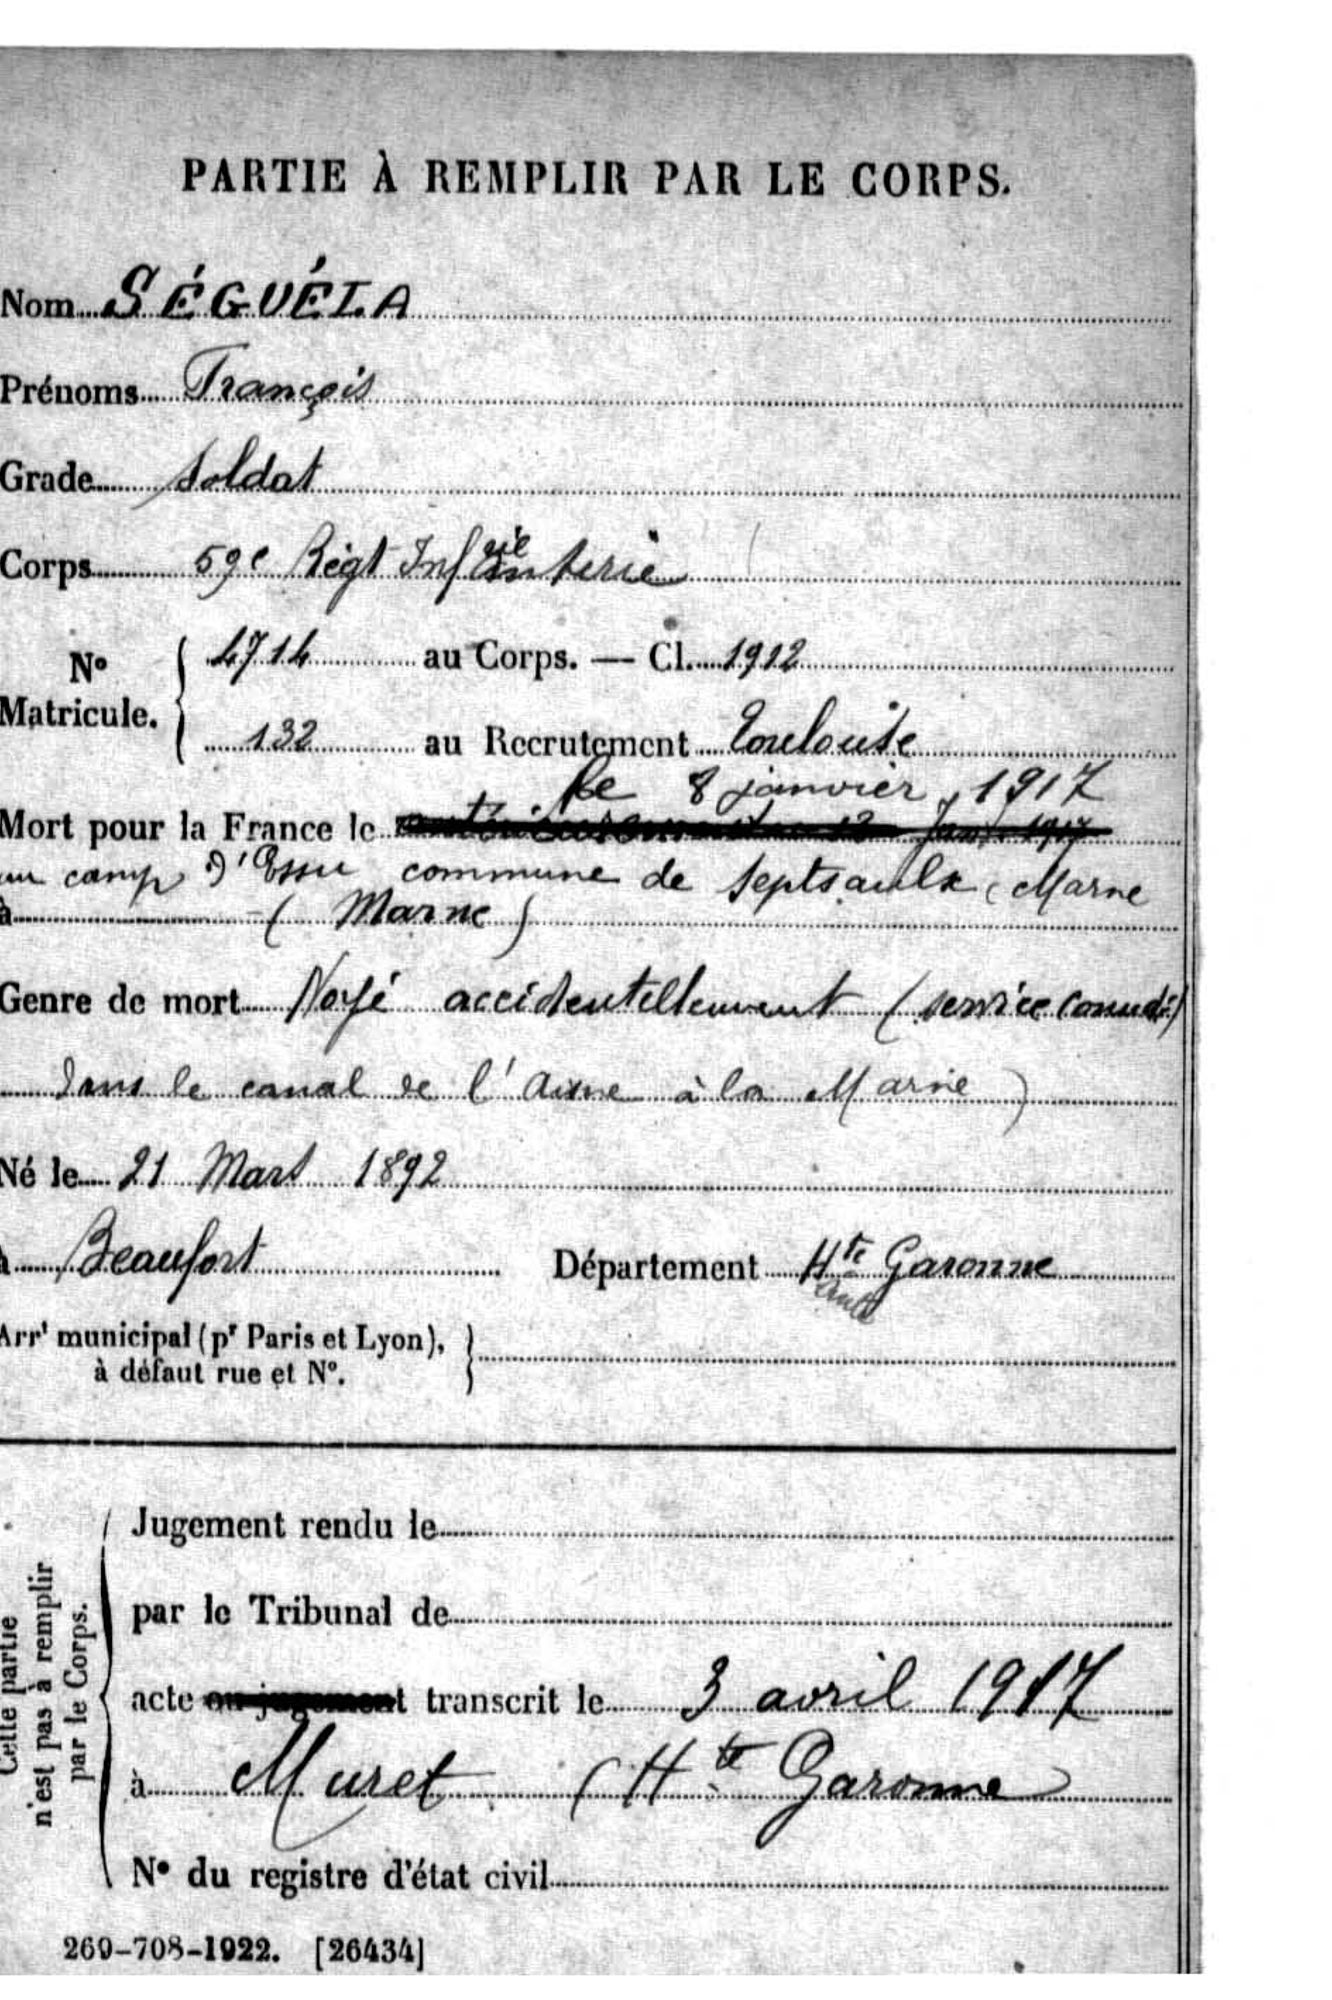 PARTIE À REMPLIR PAR LE CORPS.
Nom SÉGUÉLA
Prénoms François
Grade Soldat
Corps 59e Régt Infanterie rie
N° Matricule.
4714 au Corps. — Cl. 1912
132 au Recrutement Toulouse
le 8 janvier 1917
Mort pour la France le antérieurement au 12 Janv. 1917
au camp d' commune de Septsaulx (Marne
à (Marne)
Genre de mort Noyé accidentellement (service comdé)
dans le canal de l'Aisne à la Marne)
Né le 21 Mars 1892
à Beaufort Département Hte Garonne
Arrt municipal (pr Paris et Lyon),
à défaut rue et N°.
Cette partie
n'est pas à remplir
par le Corps.
Jugement rendu le
par le Tribunal de
acte ou jugement transcrit le 3 avril 1917
à Muret (Hte Garonne
N° du registre d'état civil
269-708-1922. [26434]